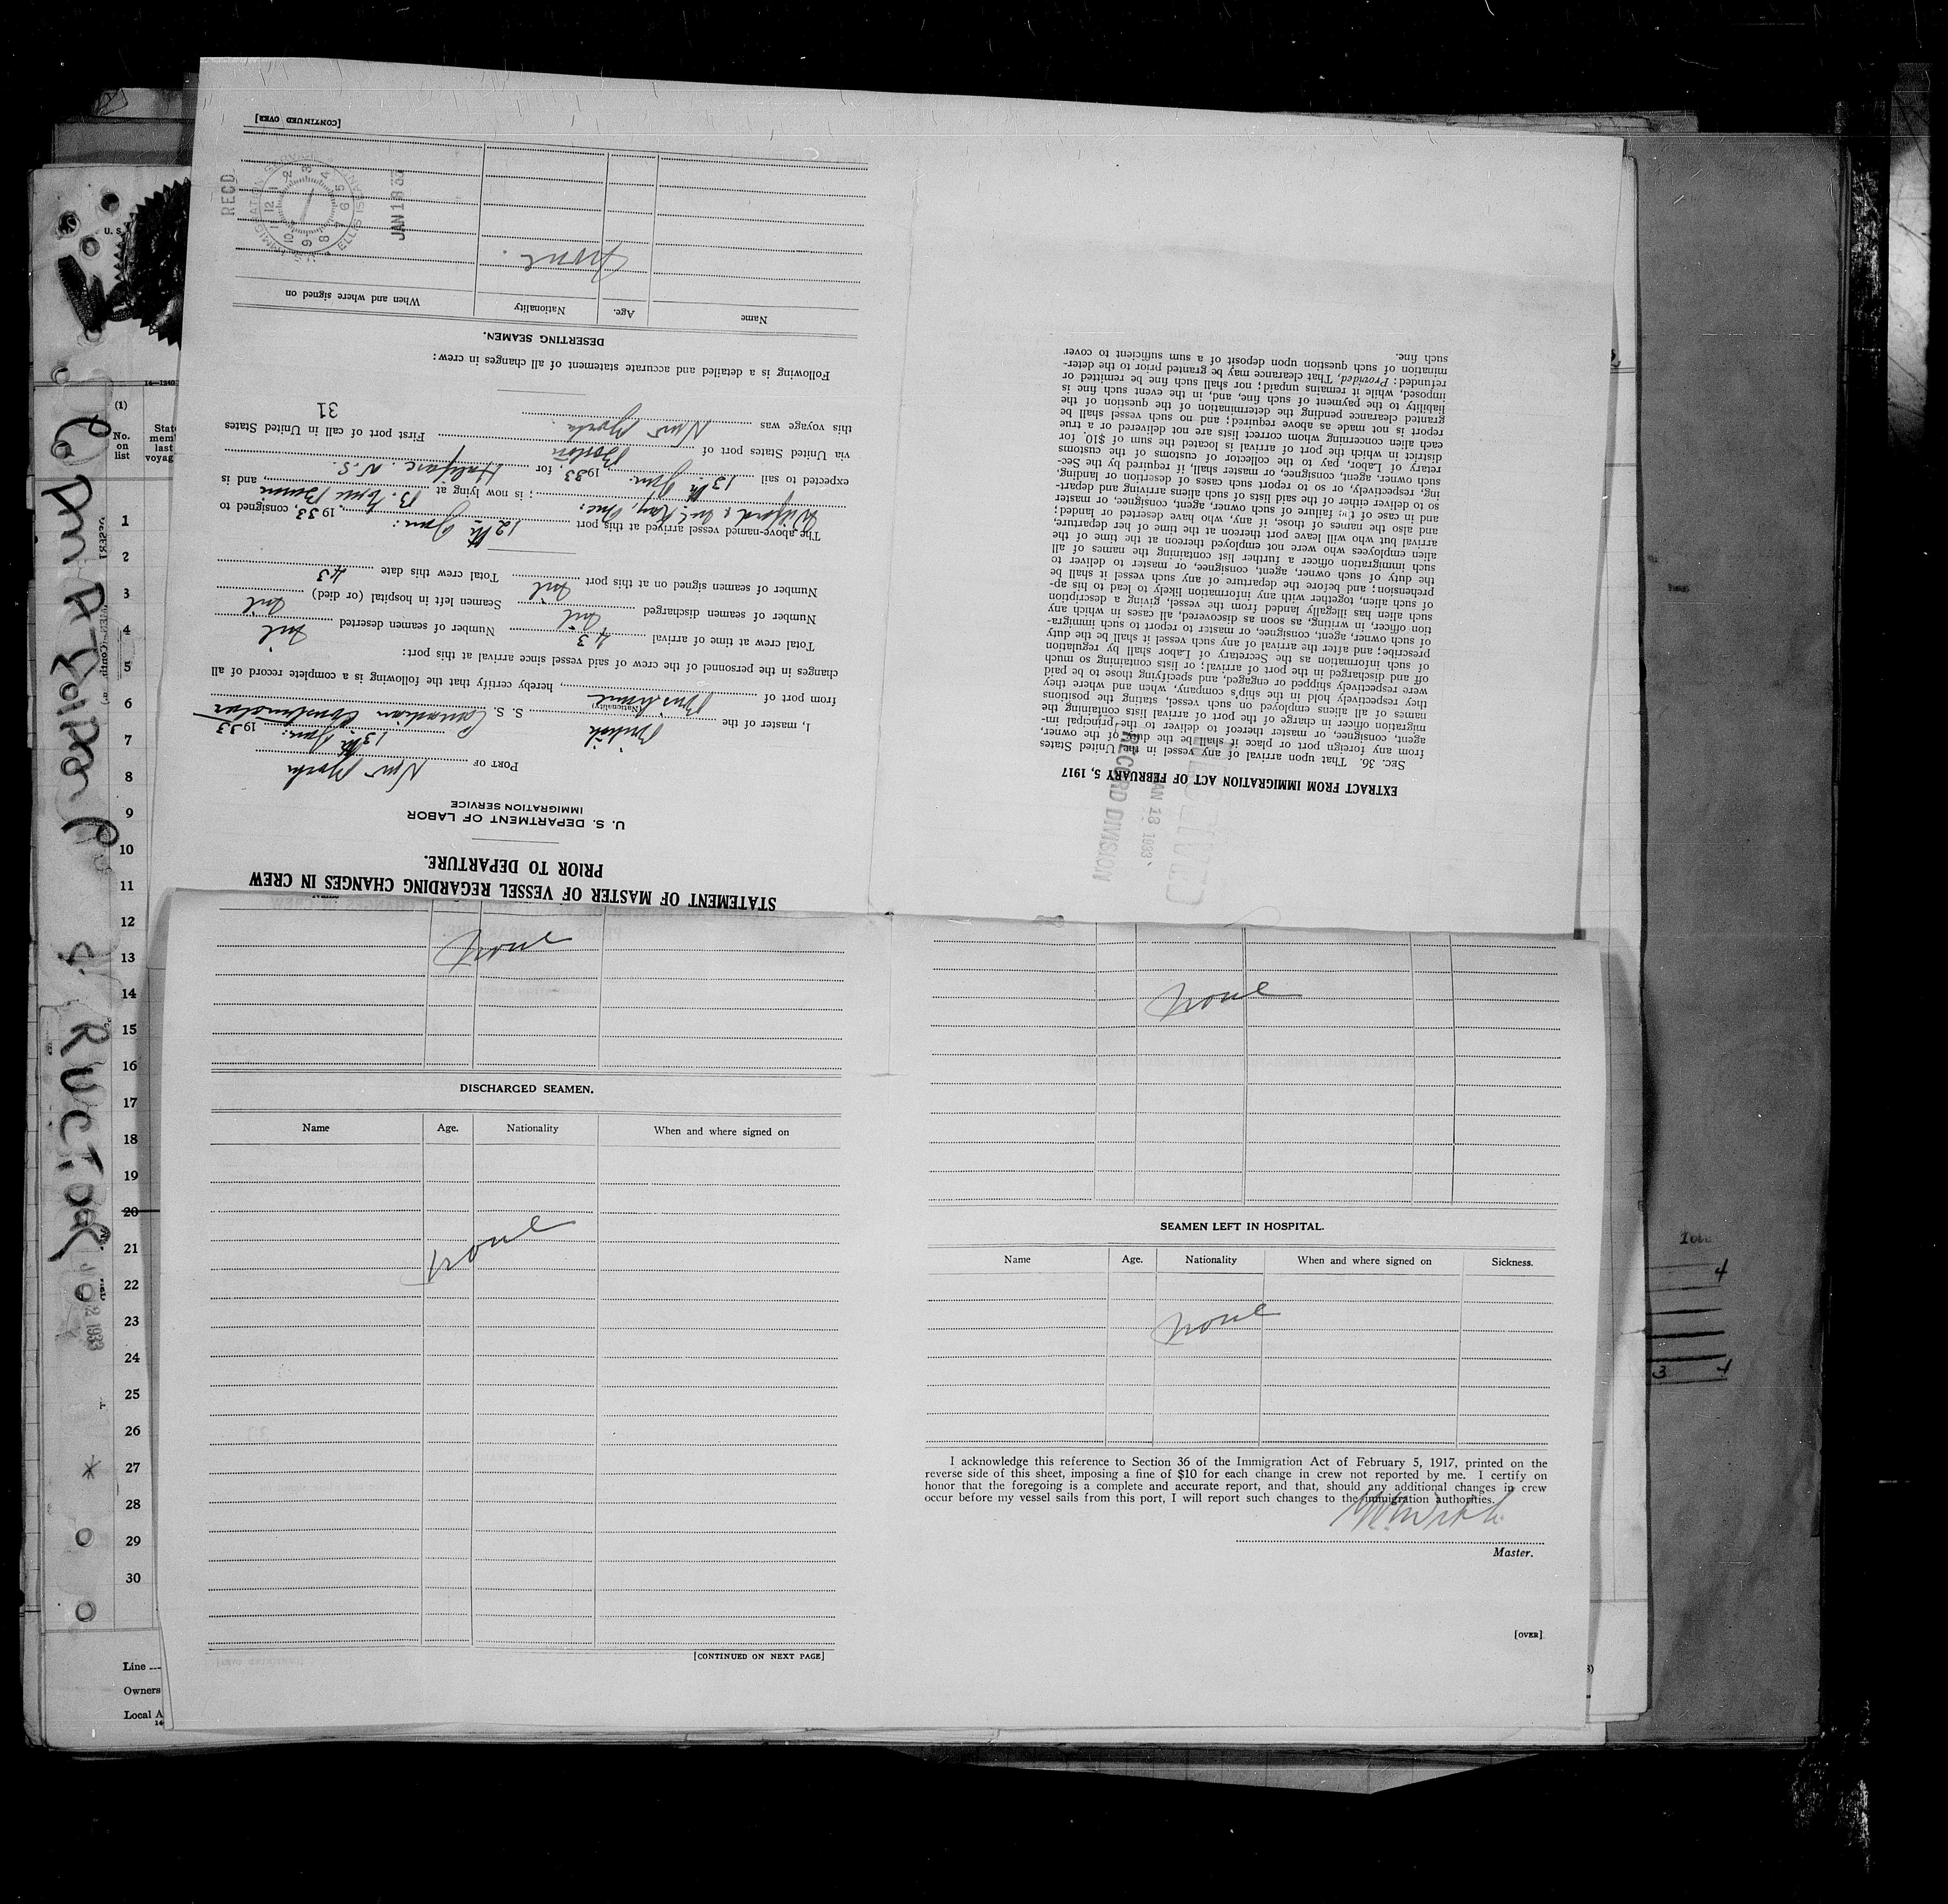 STATEMENT OF MASTER OF VESSEL REGARDING CHANGES IN CREW
PRIOR TO DEPARTURE.
U. S. DEPARTMENT OF LABOR
IMMIGRATION SERVICE
PORT OF New York
13th Jan: 1933
I, master of the British S. S. Canadian Constructor
(Nationality)
from port of Brisbane, hereby certify that the following is a complete record of all
changes in the personnel of the crew of said vessel since arrival at this port:
Total crew at time of arrival 43 Number of seamen deserted Nil
Number of seamen discharged Nil Seamen left in hospital (or died) Nil
Number of seamen signed on at this port Nil Total crew this date 43
The above-named vessel arrived at this port 12th Jan: 1933, consigned to
Inc: ; is now lying at B. and is
expected to sail 13th Jan. 1933, for Halifax. N.S.
via United States port of Boston First port of call in United States
this voyage was New York
31
Following is a detailed and accurate statement of all changes in crew:
DESERTING SEAMEN.
Name Age. Nationality When and where signed on
None.
RECD
U.S. IMMIGRATION SERVICE
ELLIS ISLAND
JAN 13 33
[CONTINUED OVER]
EXTRACT FROM IMMIGRATION ACT OF FEBRUARY 5, 1917
SEC. 36. That upon arrival of any vessel in the United States
from any foreign port or place it shall be the duty of the owner,
agent, consignee, or master thereof to deliver to the principal im-
migration officer in charge of the port of arrival lists containing the
names of all aliens employed on such vessel, stating the positions
they respectively hold in the ship's company, when and where they
were respectively shipped or engaged, and specifying those to be paid
off and discharged in the port of arrival; or lists containing so much
of such information as the Secretary of Labor shall by regulation
prescribe; and after the arrival of any such vessel it shall be the duty
of such owner, agent, consignee, or master to report to such immigra-
tion officer, in writing, as soon as discovered, all cases in which any
such alien has illegally landed from the vessel, giving a description
of such alien, together with any information likely to lead to his ap-
prehension; and before the departure of any such vessel it shall be
the duty of such owner, agent, consignee, or master to deliver to
such immigration officer a further list containing the names of all
alien employees who were not employed thereon at the time of the
arrival but who will leave port thereon at the time of her departure,
and also the names of those, if any, who have deserted or landed;
and in case of the failure of such owner, agent, consignee, or master
so to deliver either of the said lists of such aliens arriving and depart-
ing, respectively, or so to report such cases of desertion or landing,
such owner, agent, consignee, or master, shall, if required by the Sec-
retary of Labor, pay to the collector of customs of the customs
district in which the port of arrival is located the sum of $10 for
each alien concerning whom correct lists are not delivered or a true
report is not made as above required; and no such vessel shall be
granted clearance pending the determination of the question of the
liability to the payment of such fine, and, in the event such fine is
imposed, while it remains unpaid; nor shall such fine be remitted or
refunded: Provided, That clearance may be granted prior to the deter-
mination of such question upon deposit of a sum sufficient to cover
such fine.
JAN 13 1933
RECORD DIVISION
None
DISCHARGED SEAMEN.
Name Age. Nationality When and where signed on
None
[CONTINUED ON NEXT PAGE]
None
SEAMEN LEFT IN HOSPITAL.
Name Age. Nationality When and where signed on Sickness.
None
I acknowledge this reference to Section 36 of the Immigration Act of February 5, 1917, printed on the
reverse side of this sheet, imposing a fine of $10 for each change in crew not reported by me. I certify on
honor that the foregoing is a complete and accurate report, and that, should any additional changes in crew
occur before my vessel sails from this port, I will report such changes to the immigration authorities.
Master.
[OVER]
U. S.
(1)
No.
on
list
1
2
3
4
5
6
7
8
9
10
11
12
13
14
15
16
17
18
19
20
21
22
23
24
25
26
27
28
29
30
Line
Owners
Local A
4
3 4